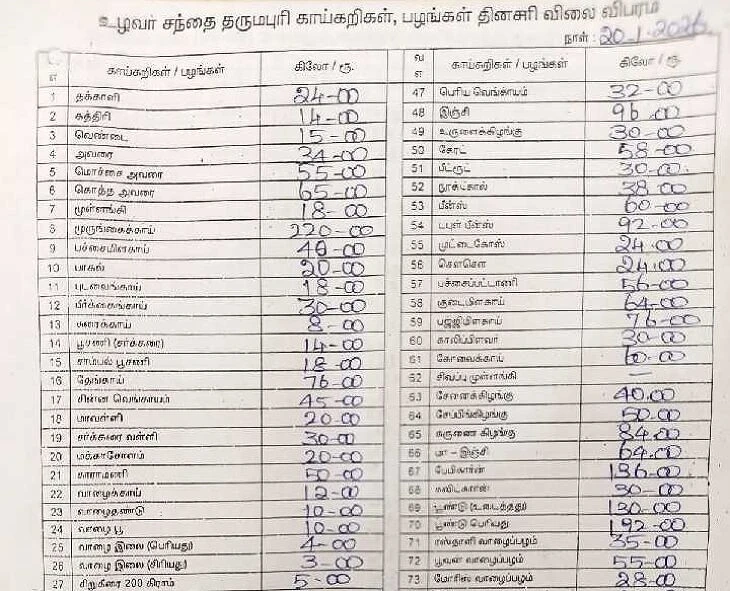 உழவர் சந்தை தருமபுரி காய்கறிகள், பழங்கள் தினசரி விலை விபரம்
நாள் : 20.1.2026
காய்கறிகள் / பழங்கள் கிலோ / ரூ.
1 தக்காளி 24-00
2 கத்திரி 14-00
3 வெண்டை 15-00
4 அவரை 34-00
5 மொச்சை அவரை 55-00
6 கொத்த அவரை 65-00
7 முள்ளங்கி 18-00
8 முருங்கைக்காய் 220-00
9 பச்சைமிளகாய் 40-00
10 பாகல் 20-00
11 புடலங்காய் 18-00
12 பீர்க்கைங்காய் 30-00
13 சுரைக்காய் 8-00
14 பூசணி (சர்க்கரை) 14-00
15 சாம்பல் பூசணி 18-00
16 தேங்காய் 76-00
17 சின்ன வெங்காயம் 45-00
18 மாவள்ளி 20-00
19 சர்க்கரை வள்ளி 30-00
20 மக்காசோளம் 20-00
21 காராமணி 50-00
22 வாழைக்காய் 12-00
23 வாழைதண்டு 10-00
24 வாழை பூ 10-00
25 வாழை இலை (பெரியது) 4-00
26 வாழை இலை (சிரியது) 3-00
27 சிறுகீரை 200 கிராம் 5-00
வ எ காய்கறிகள் / பழங்கள் கிலோ / ரூ.
47 பெரிய வெங்காயம் 32-00
48 இஞ்சி 96-00
49 உருளைக்கிழங்கு 30-00
50 கேரட் 58-00
51 பீட்ரூட் 30-00
52 நூக்கோல் 38-00
53 பீன்ஸ் 60-00
54 டபுள் பீன்ஸ் 92-00
55 முட்டைகோஸ் 24.00
56 சௌசௌ 24.00
57 பச்சைப்பட்டாணி 56-00
58 குடைமிளகாய் 64-00
59 பஜ்ஜிமிளகாய் 76-00
60 காலிப்பிளவர் 30-00
61 கோவைக்காய்
62 சிவப்பு முள்ளங்கி —
63 சேனைக்கிழங்கு 40.00
64 சேப்பங்கிழங்கு 50.00
65 கருணை கிழங்கு 84.00
66 மா - இஞ்சி 64.00
67 பேபிகார்ன் 136-00
68 சுவிட்கார்ன் 30-00
69 பூண்டு (உடைத்தது) 130-00
70 பூண்டு பெரியது 192-00
71 ரஸ்தாளி வாழைப்பழம் 35-00
72 பூவன் வாழைப்பழம் 55-00
73 மோரிஸ் வாழைப்பழம் 28-00